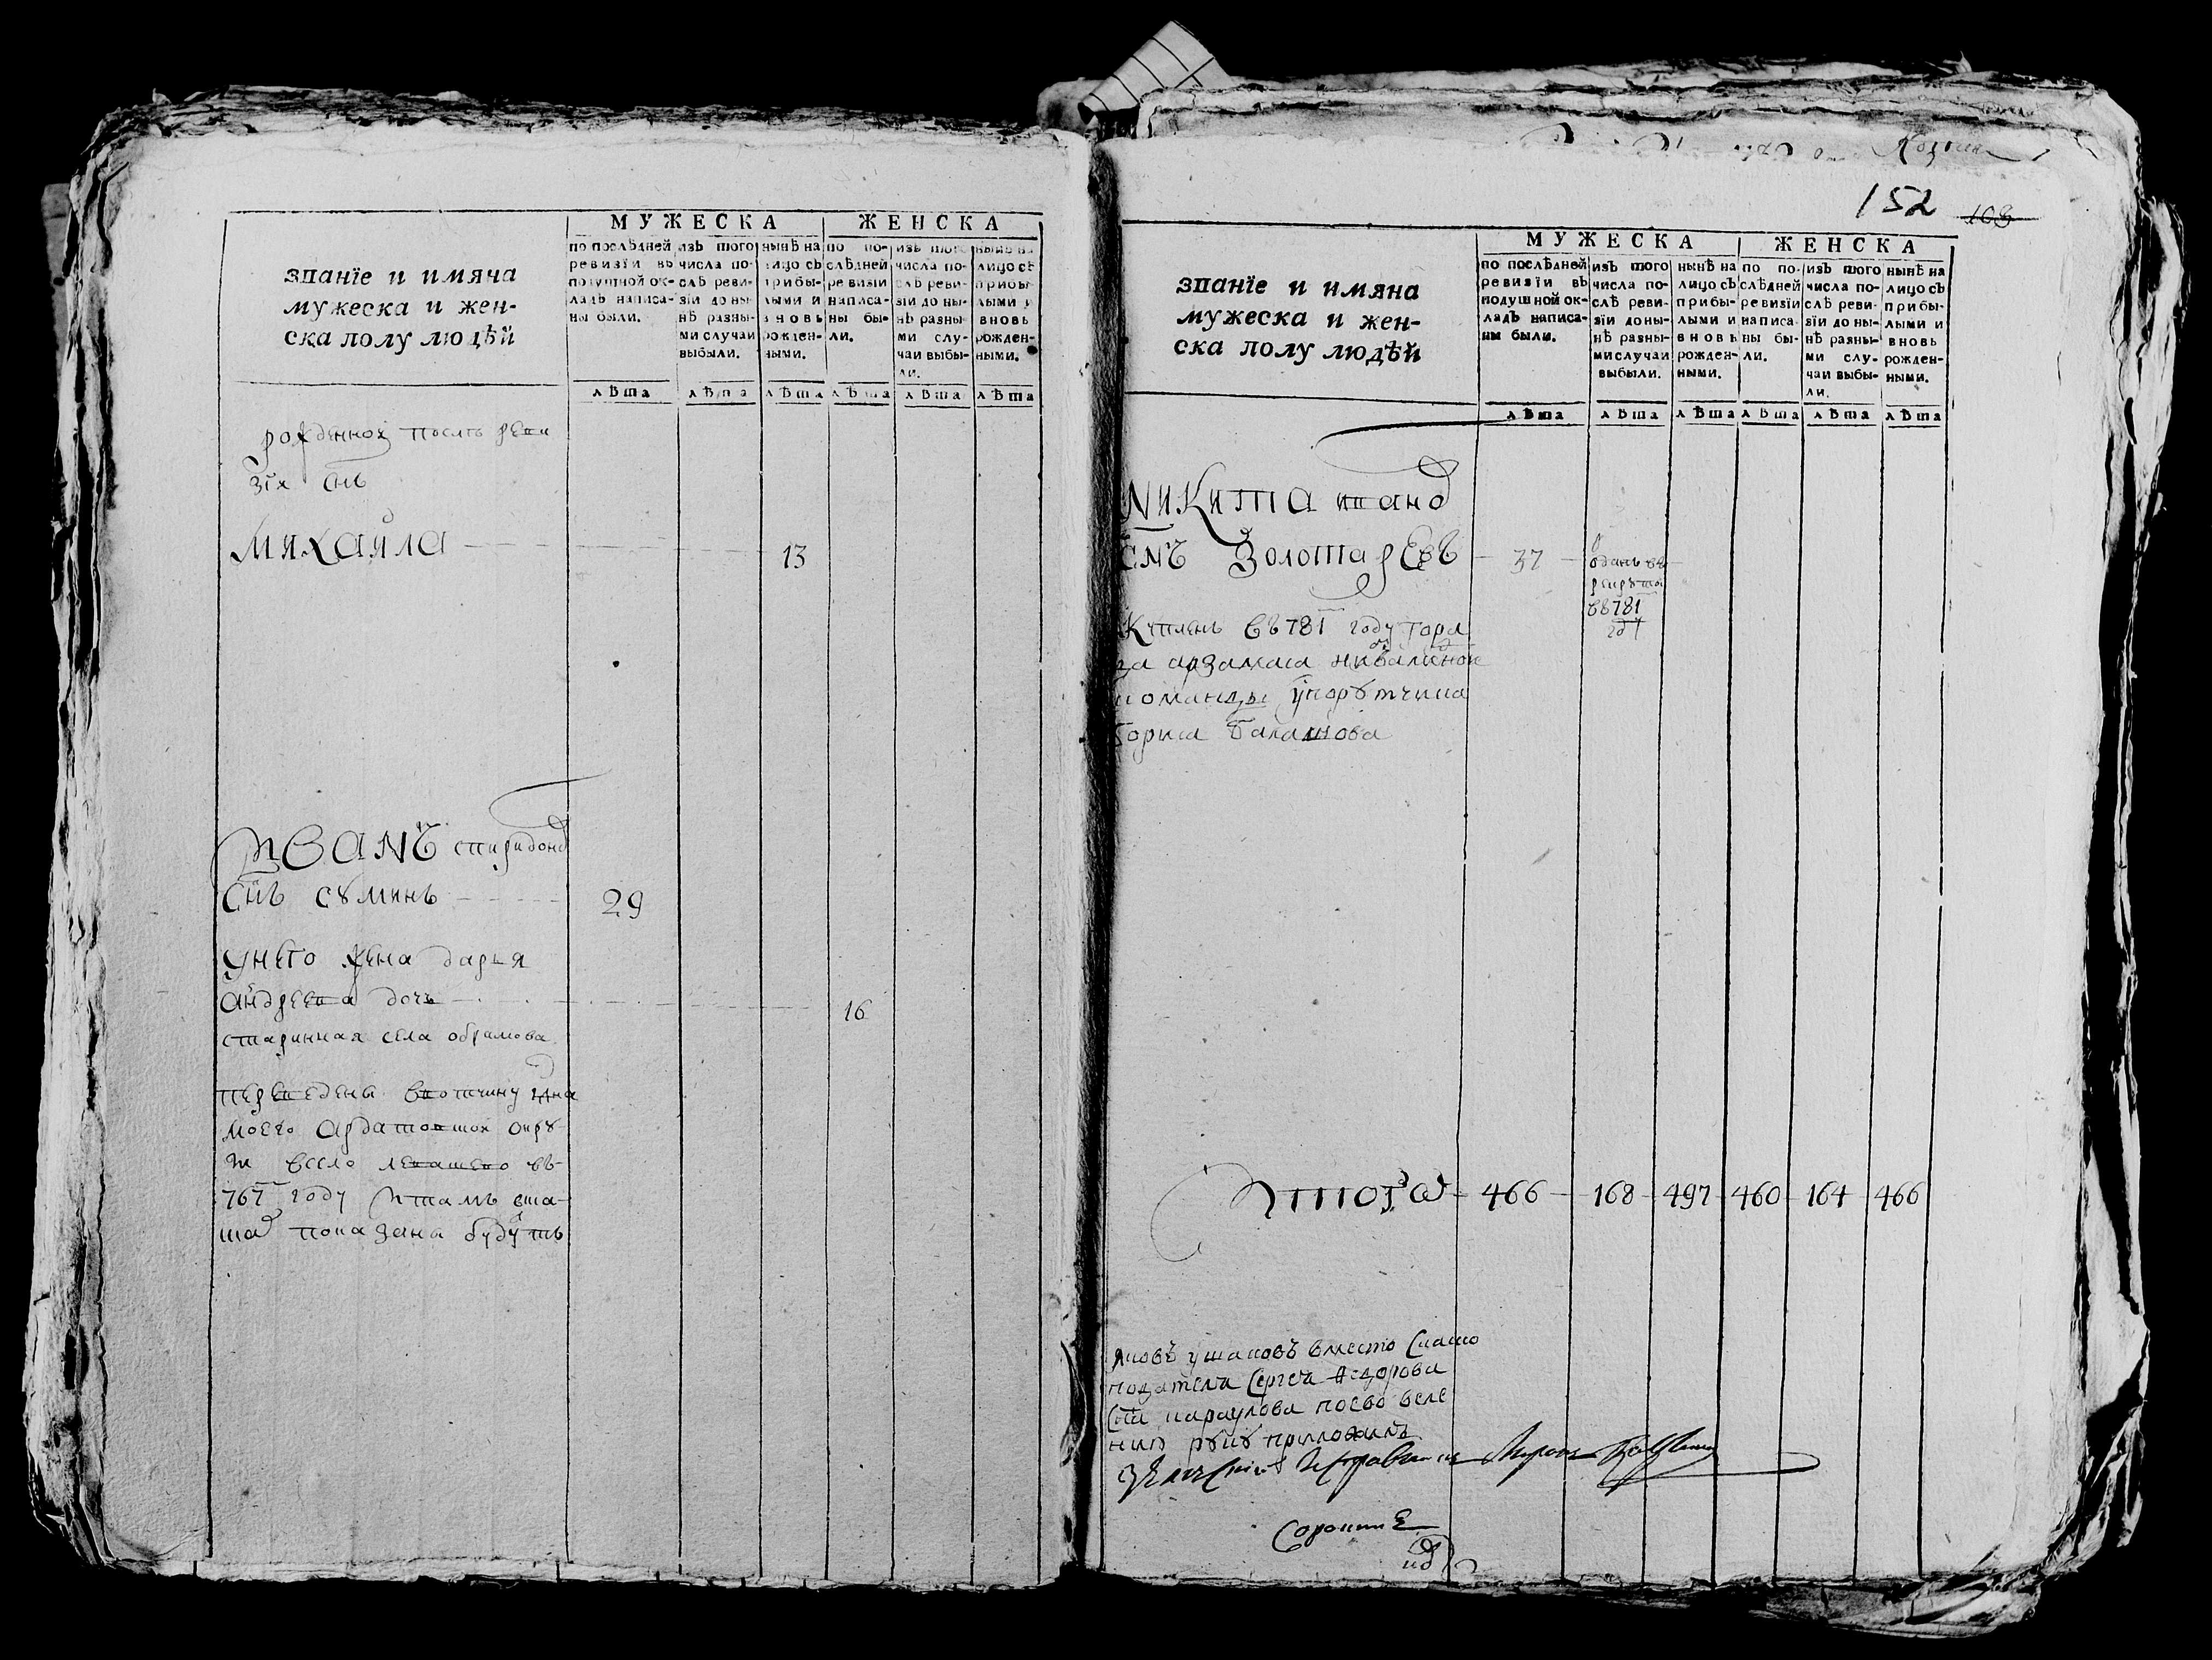 МУЖЕСКА
ЖЕНСКА
званїе и имяна
мужеска и жен-
ска полу людѣй
по послѣдней
ревизїи въ
подушной ок-
ладъ написа-
ны были.
изъ того
числа по-
слѣ реви-
зїи до ны-
нѣ разны-
ми случаи
выбыли.
нынѣ на
лицо съ
прибы-
лыми и
вновь
рожден-
ными.
по по-
слѣдней
ревизїи
написа-
ны бы-
ли.
изъ того
числа по-
слѣ реви-
зїи до ны-
нѣ разны-
ми слу-
чаи выбы-
ли.
нынѣ на
лицо съ
прибы-
лыми и
вновь
рожден-
ными.
лѣта лѣта лѣта лѣта лѣта лѣта
рожденной послѣ реви
зїи снъ
Михайла 13
Иванъ спиридонов
снъ сꙋминъ 29
унего жена дарья
андреева дочь 16
старинная села обрамова
переведены ввотчину
моего ардатовской окрꙋ
ги всело левашево въ
767 году итамъ ста
тьѣ показаны будутъ
152 103
МУЖЕСКА
ЖЕНСКА
званїе и имяна
мужеска и жен-
ска полу людѣй
по послѣдней
ревизїи въ
подушной ок-
ладъ написа-
ны были.
изъ того
числа по-
слѣ реви-
зїи до ны-
нѣ разны-
ми случаи
выбыли.
нынѣ на
лицо съ
прибы-
лыми и
вновь
рожден-
ными.
по по-
слѣдней
ревизїи
написа-
ны бы-
ли.
изъ того
числа по-
слѣ реви-
зїи до ны-
нѣ разны-
ми слу-
чаи выбы-
ли.
нынѣ на
лицо съ
прибы-
лыми и
вновь
рожден-
ными.
лѣта лѣта лѣта лѣта лѣта лѣта
Никита иванов
снъ Золотаревъ 37
отданъ въ
рекрꙋты
въ 781
году
Купленъ въ 781 году горо
да арзамаса инвалидной
команды упорꙋтчика
Бориса Балашова
Итого 466 168 497 460 164 466
яковъ ушаковъ вместо
подателя Сергея Федорова
сна караулова поево веле
нию рꙋкꙋ приложилъ